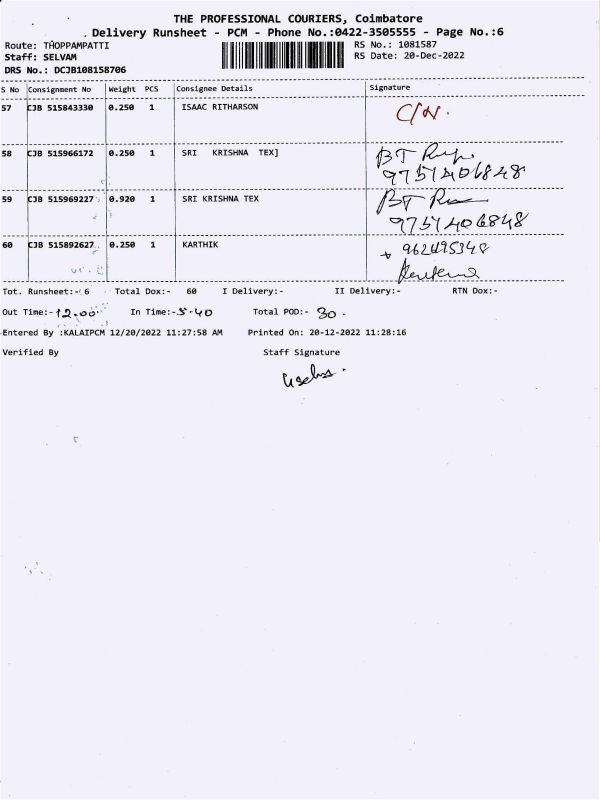 THE PROFESSIONAL COURIERS, Coimbatore
Delivery Runsheet - PCM - Phone No.:0422-3505555 - Page No.:6
Route: THOPPAMPATTI
RS No.: 1081587
Staff: SELVAM
RS Date: 20-Dec-2022
DRS No.: DCJB108158706
S No Consignment No Weight PCS Consignee Details Signature
57 CJB 515843330 0.250 1 ISAAC RITHARSON C/N.
58 CJB 515966172 0.250 1 SRI KRISHNA TEX] BT
9751406848
59 CJB 515969227 0.920 1 SRI KRISHNA TEX BT
9751406848
60 CJB 515892627 0.250 1 KARTHIK
Tot. Runsheet:- 6 Total Dox:- 60 I Delivery:- II Delivery:- RTN Dox:-
Out Time:- 12.00 In Time:- 5.40 Total POD:- 30.
Entered By :KALAIPCM 12/20/2022 11:27:58 AM Printed On: 20-12-2022 11:28:16
Verified By Staff Signature